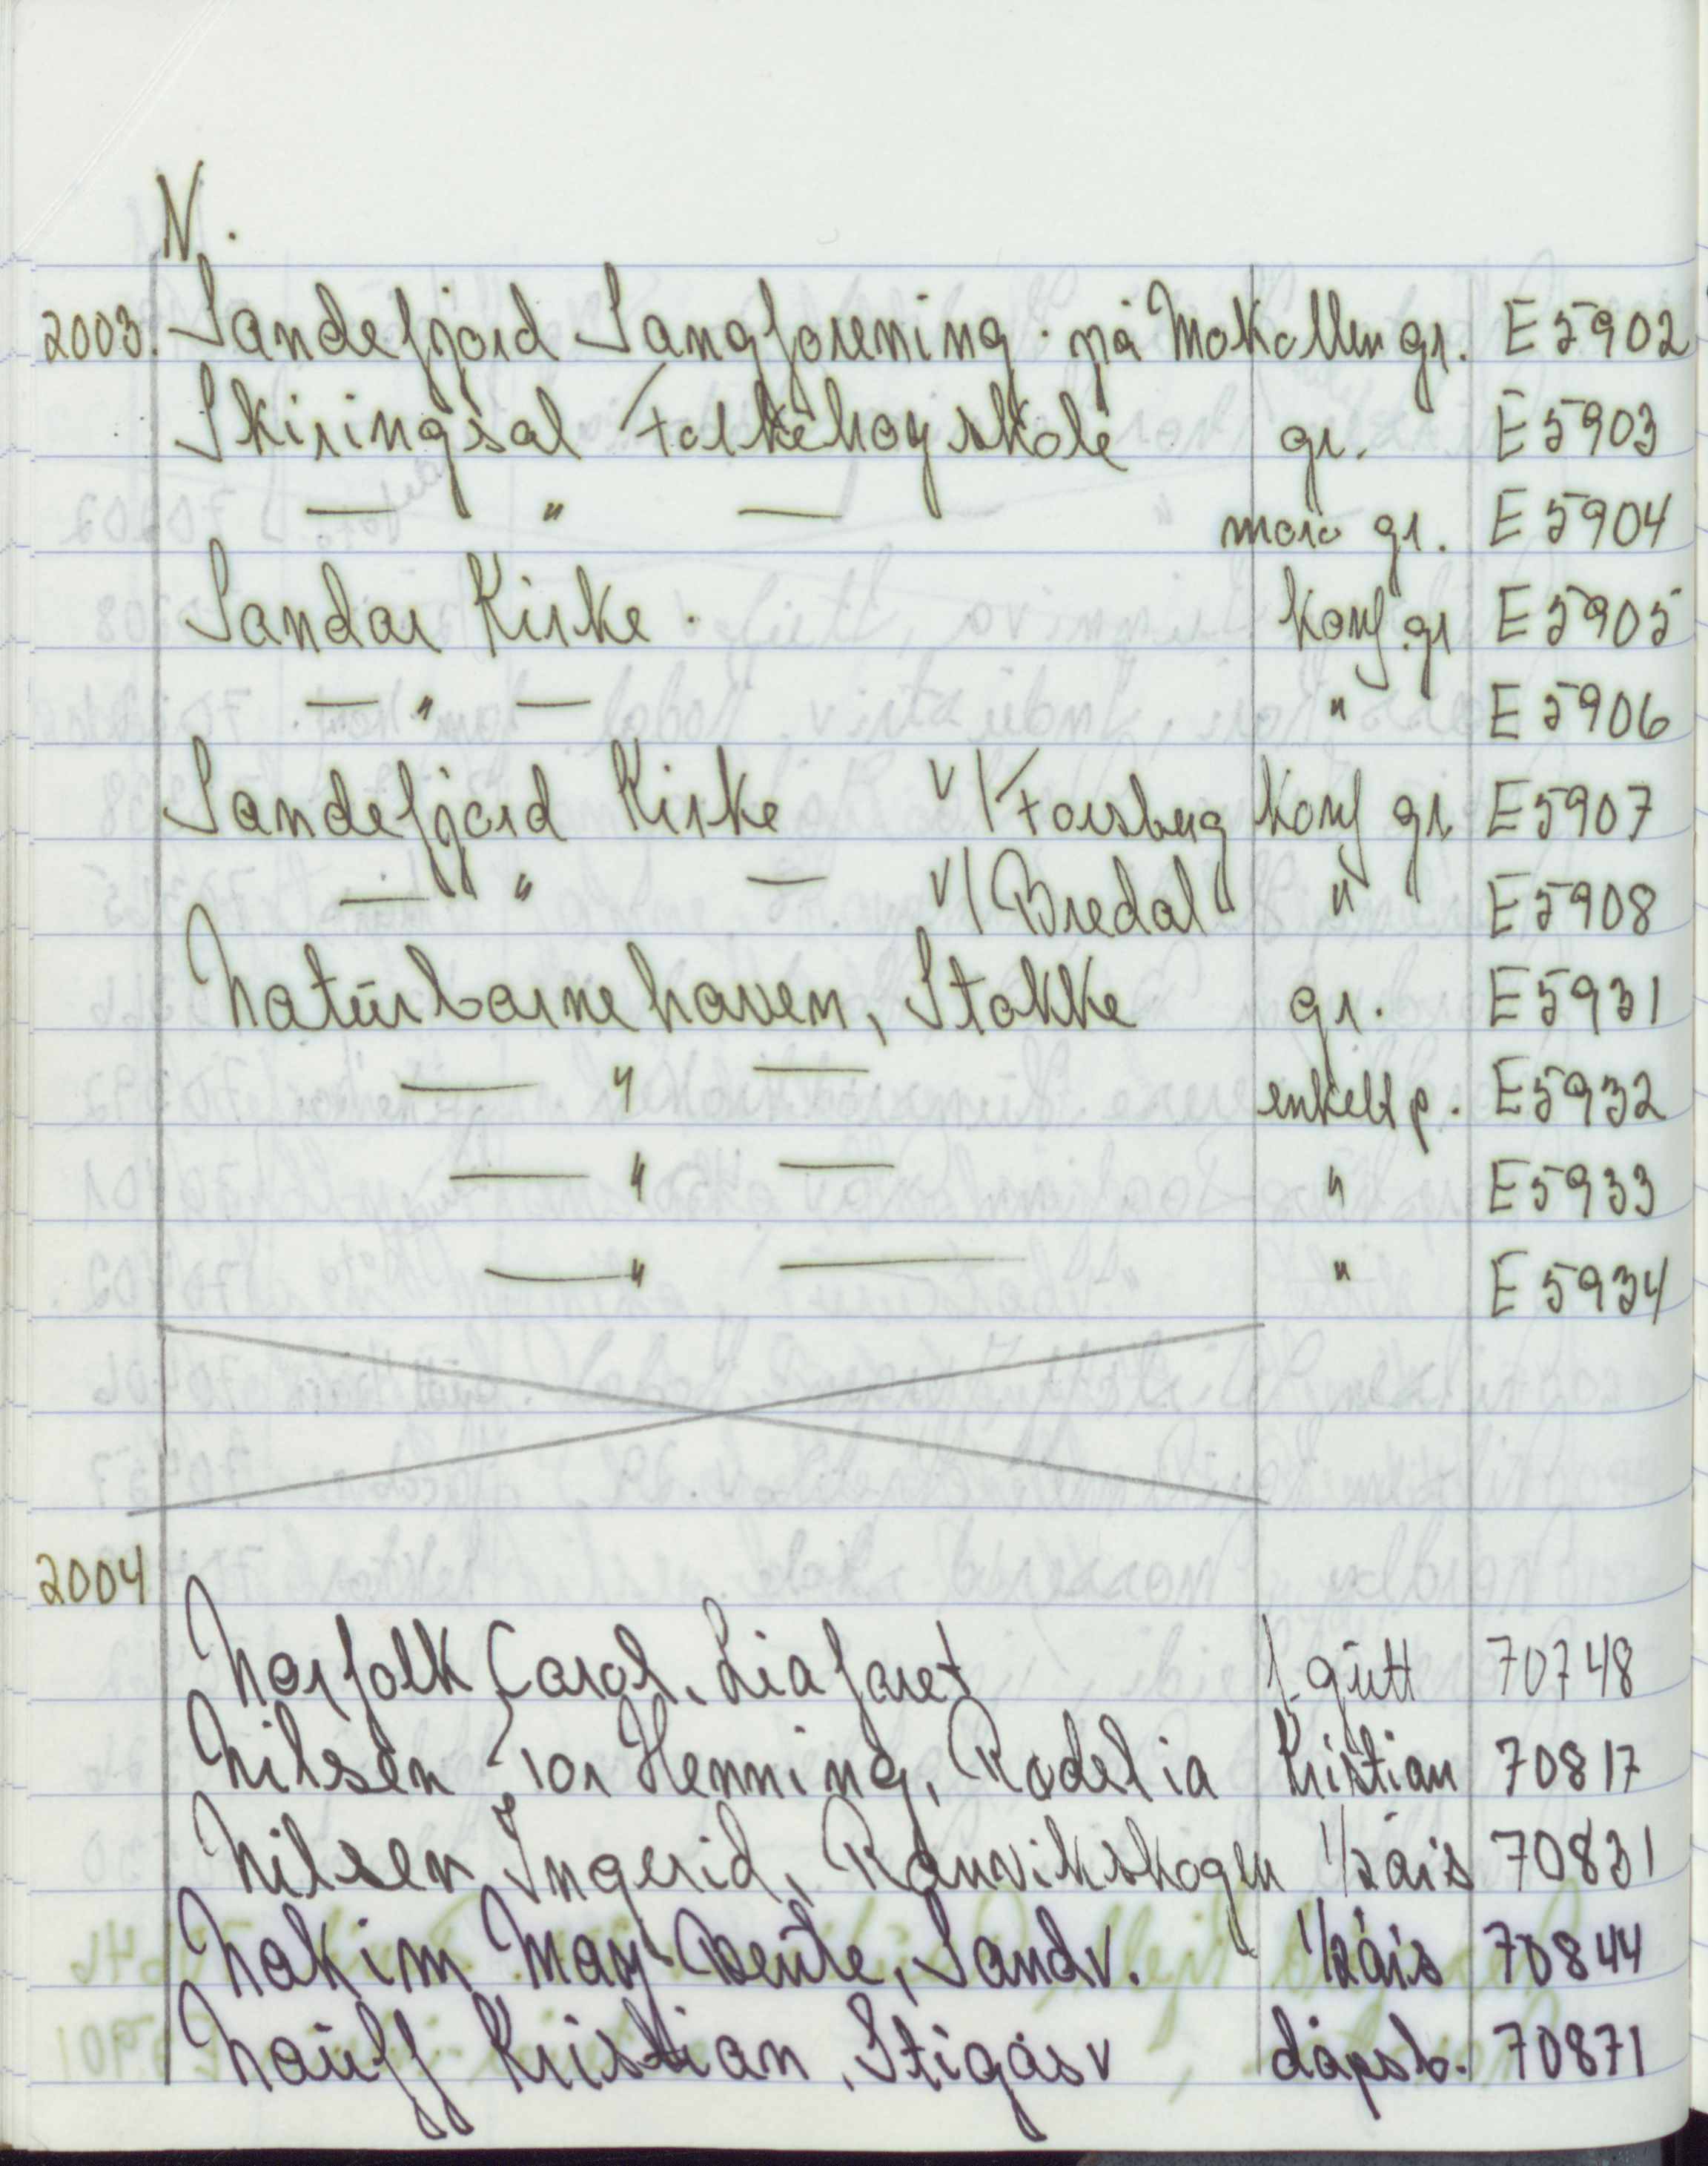 N.
2003. Sandefjord Sangforening. på Mokollen gr. E5902
Skiringsal Folkehøyskole gr. E5903
— " — moro gr. E5904
Sandar Kirke. konf gr E5905
— " — " E5906
Sandefjord Kirke v/Forsberg konf gr E5907
— " — v/Bredal " E5908
Naturbarnehaven, Stokke gr. E5931
— " — enkelt p. E5932
— " — " E5933
— " — " E5934
2004
Norfolk Carol, Liafaret f. gutt 70748
Nilsen Tor Henning, Rødslia Kristian 70817
Nilsen Ingerid, Ranvikskogen 1/2 års 70831
Nakim May-Bente, Sandv. 1/2 års 70844
Nauff Kristian, Stigåsv dåpsb. 70871